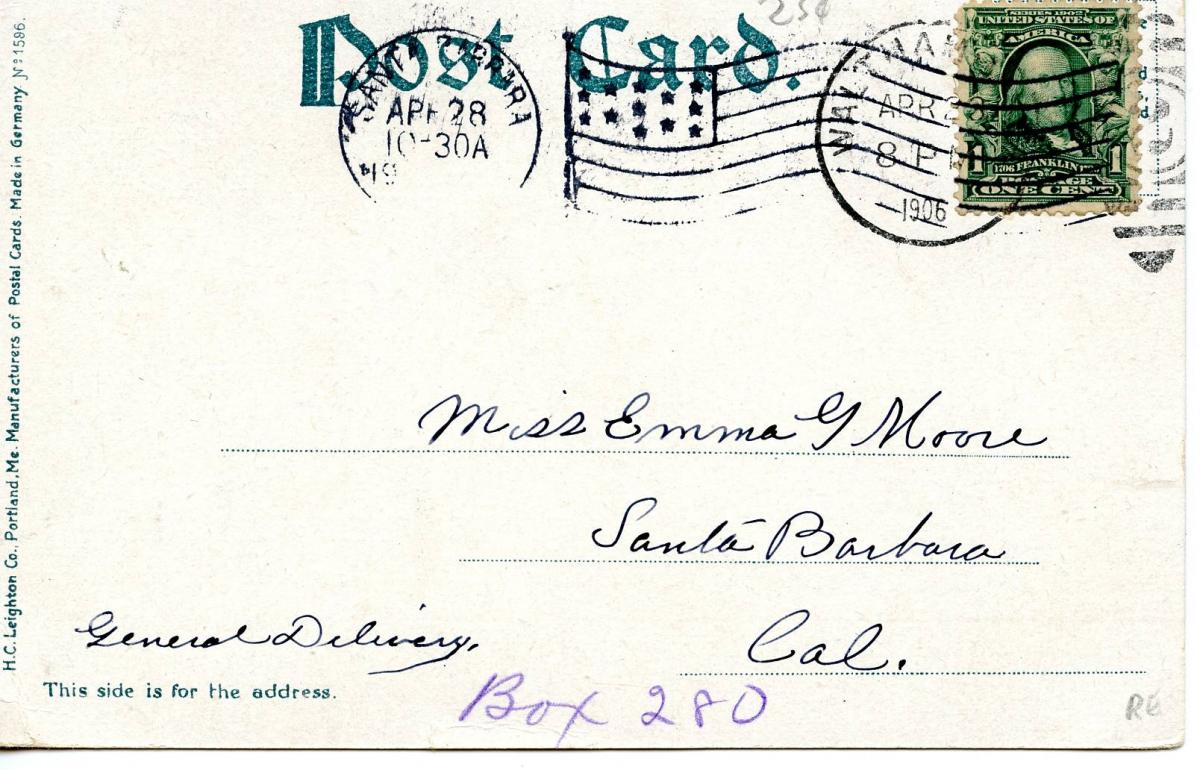 25¢
Post Card.
SANTA BARBARA
APR 28
10-30A
19
WALTHAM
APR 23
8 PM
1906
SERIES 1902
UNITED STATES OF
AMERICA
1706 FRANKLIN
POSTAGE
1 1
ONE CENT
H.C. Leighton Co., Portland, Me. Manufacturers of Postal Cards. Made in Germany. Nº 1586.
Miss Emma G Moore
Santa Barbara
General Delivery,
Cal.
This side is for the address.
Box 280
RE